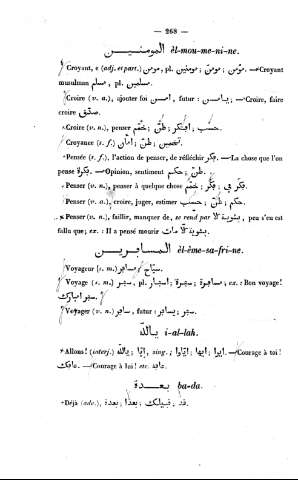 — 268 —
المومنين èl-mou-me-ni-ne.
Croyant, e (adj. et part.), مومن, pl. مومنين; مؤمن; مومن. — Croyant
musulman مسلم, pl. مسلمين.
Croire (v. a.), ajouter foi امن, futur : يامن. — Croire, faire
croire صدّق.
Croire (v. n.), penser خمّم; ظنّ; افتكر; حسب.
Croyance (s. f.) امان; ظنّ; تخمين.
Pensée (s. f.), l'action de penser, de réfléchir فكر. — La chose que l'on
pense فكرة. — Opinion, sentiment حكم; ظنّ.
Penser (v. n.), penser à quelque chose خمّم; فكّر; فكر في.
Penser (v. a.), croire, juger, estimer حسب; ظنّ; حكم.
Penser (v. n.), faillir, manquer de, se rend par بشوية لا, peu s'en est
fallu que; ex : Il a pensé mourir بشوية لا مات.
المسافرين èl-ème-sa-fri-ne.
Voyageur (s. m.) مسافر; سيّاح.
Voyage (s. m.) سفر, pl. اسفار; سفرة; مسافرة, ex. : Bon voyage!
سفر امبارك.
Voyager (v. n.) سافر, futur : يسافر; سفر.
يا الله i-al-lah.
Allons! (interj.) يا الله; إيّا, sing.; إيّاوا; ايها; ايوا. — Courage à toi!
عافاك. — Courage à lui! etc. عافاه
بعدة ba-da.
Déjà (adv.), بعدة; بعدا; قبيلك; قد.